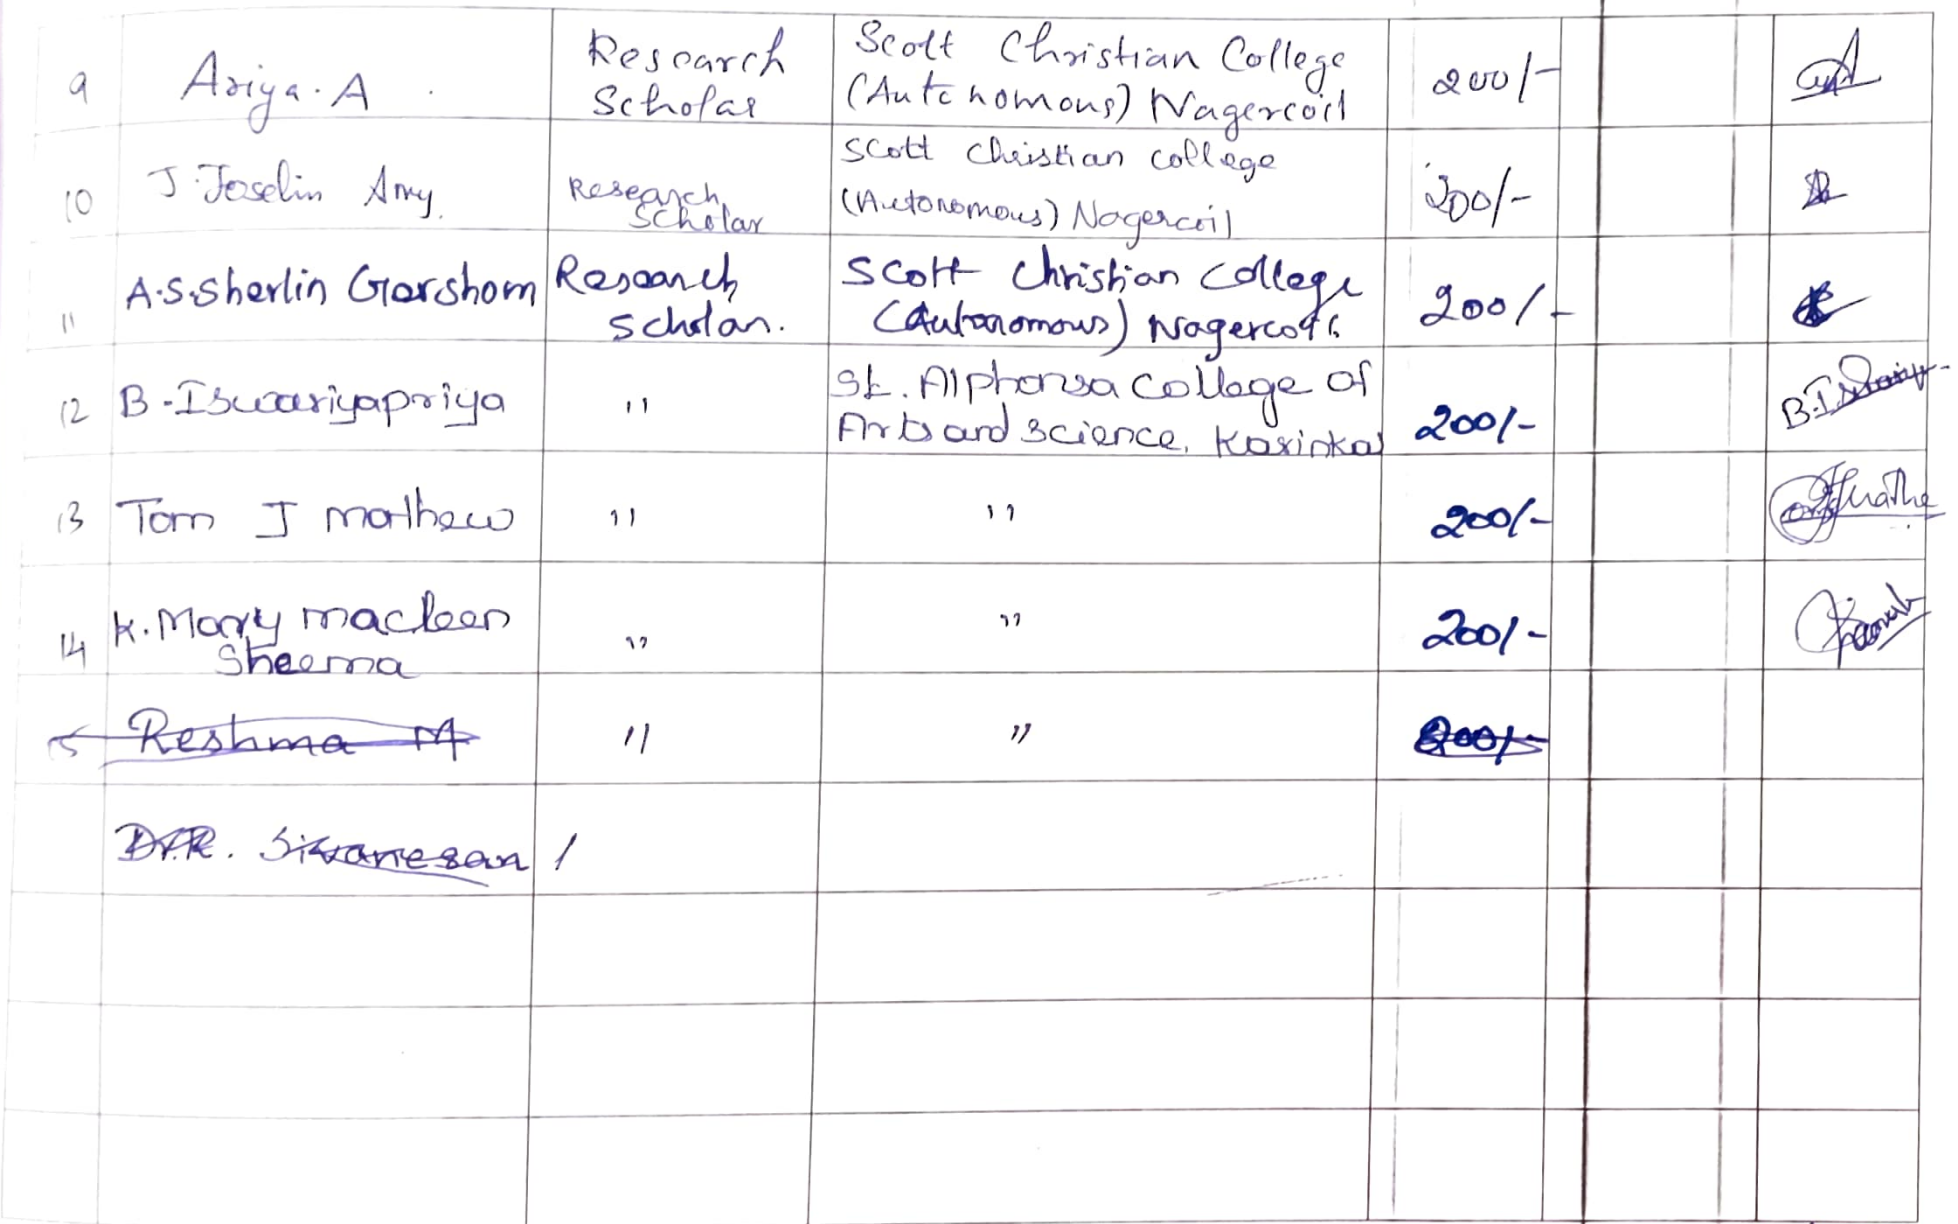 9 Ariya. A Research Scholar Scott Christian College (Autonomous) Nagercoil 200/-
10 J. Joselin Amy. Research Scholar Scott Christian College (Autonomous) Nagercoil 200/-
11 A.S.Sherlin Gershom Research Scholar. Scott Christian College (Autonomous) Nagercoil 200/-
12 B. Iswariyapriya " St. Alphonsa College of Arts and Science, Karinkal 200/- B.I
13 Tom J Mathew " " 200/-
14 K. Mary macleen Sheema " " 200/-
15 Reshma M " " 200/-
Dr.R. Sivanesan /